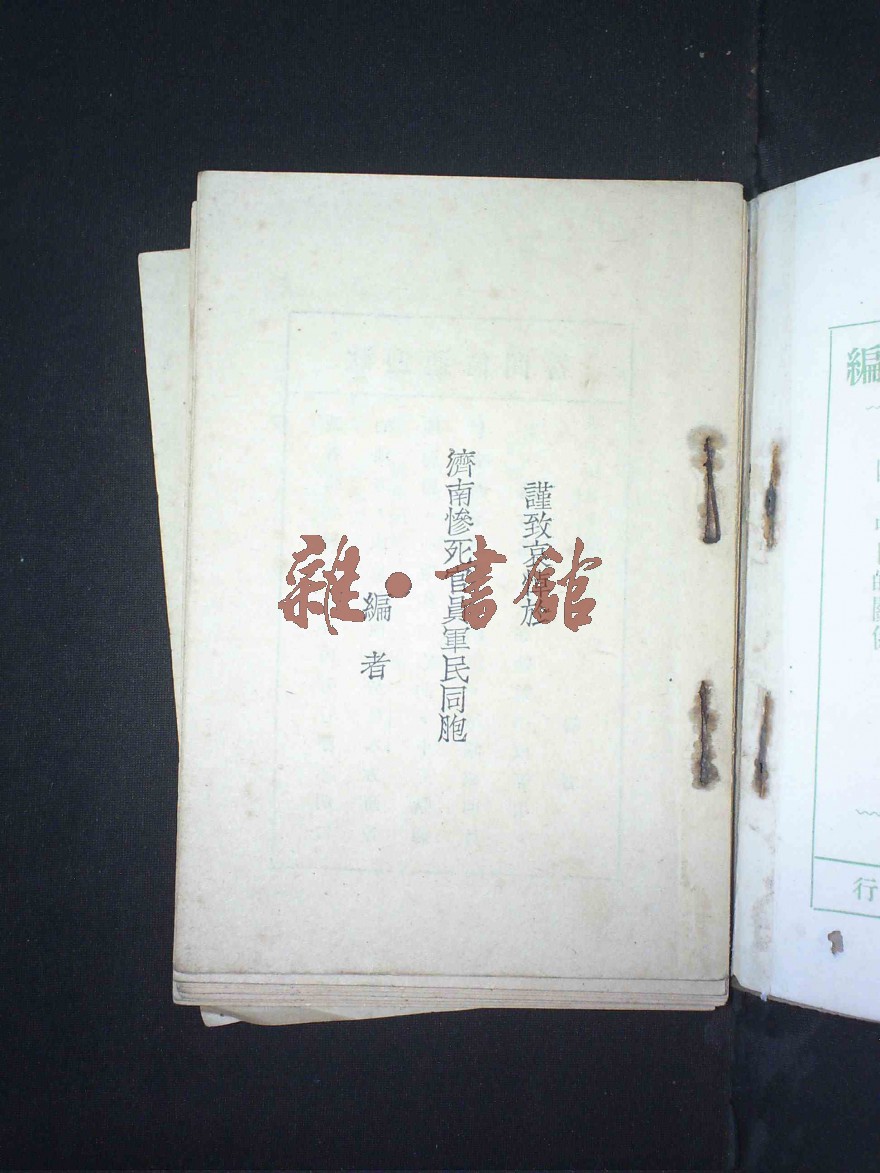 謹致哀悼於
濟南慘死官員軍民同胞
編者
雜·書館
編
行